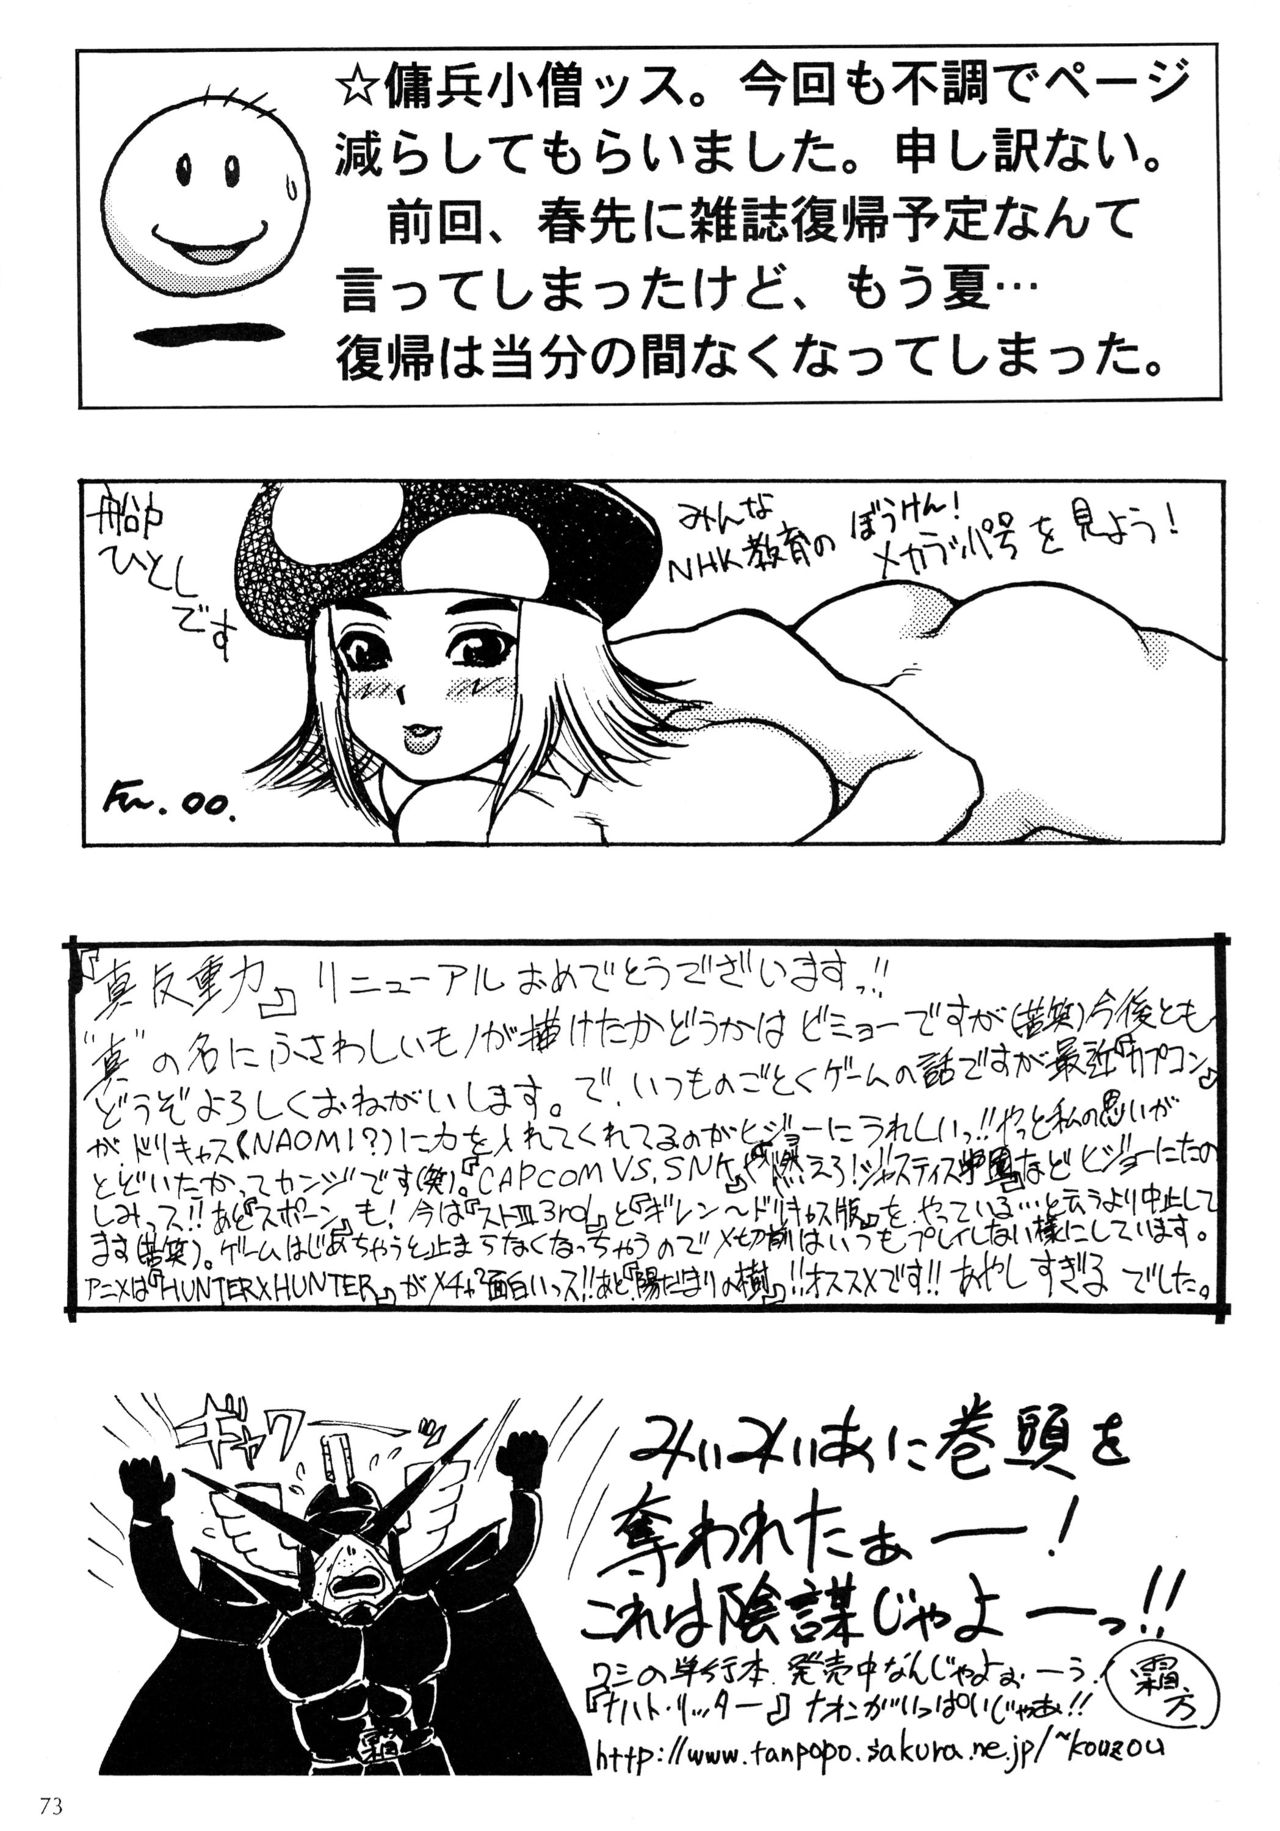 ☆傭兵小僧ッス。今回も不調でページ
減らしてもらいました。申し訳ない。
前回、春先に雑誌復帰予定なんて
言ってしまったけど、もう夏…
復帰は当分の間なくなってしまった。
船中
ひとし
です
みんな
NHK教育の
ぼうけん!
メカラッパ号を見よう!
Fn.00.
『真反重力』リニューアルおめでとうございますっ!!
"真"の名にふさわしいモノが描けたかどうかはビミョーですが(苦笑)今後とも
どうぞよろしくおねがいします。で、いつものごとくゲームの話ですが最近『カプコン』
がドリキャス(NAOMI?)に力を入れてくれてるのがヒジョーにうれしいっ!!やっと私の思いが
とどいたかってカンジです(笑)。『CAPCOM VS. SNK』や『燃えろ!ジャスティス学園』などヒジョーにたの
しみっス!!あと『スポーン』も!今は『ストⅢ3rd』と『ギレン〜ドリキャス版』を、やっている…と云うより中止して
ます(苦笑)。ゲームはじめちゃうと止まらなくなっちゃうので〆切前はいつもプレイしない様にしています。
アニメは『HUNTER×HUNTER』がメチャ?面白いっス!!あと『陽だまりの樹』!!オススメです!! あやしすぎる でした。
ギャワーーッ
みぃみぃあに巻頭を
奪われたぁー!
これは陰謀じゃよーっ!!
ワシの単行本、発売中なんじゃよぉーう!
『ナハト・リッター』ナオンがいっぱいじゃあ!!
霜方
http://www.tanpopo.sakura.ne.jp/~kouzou
霜
73